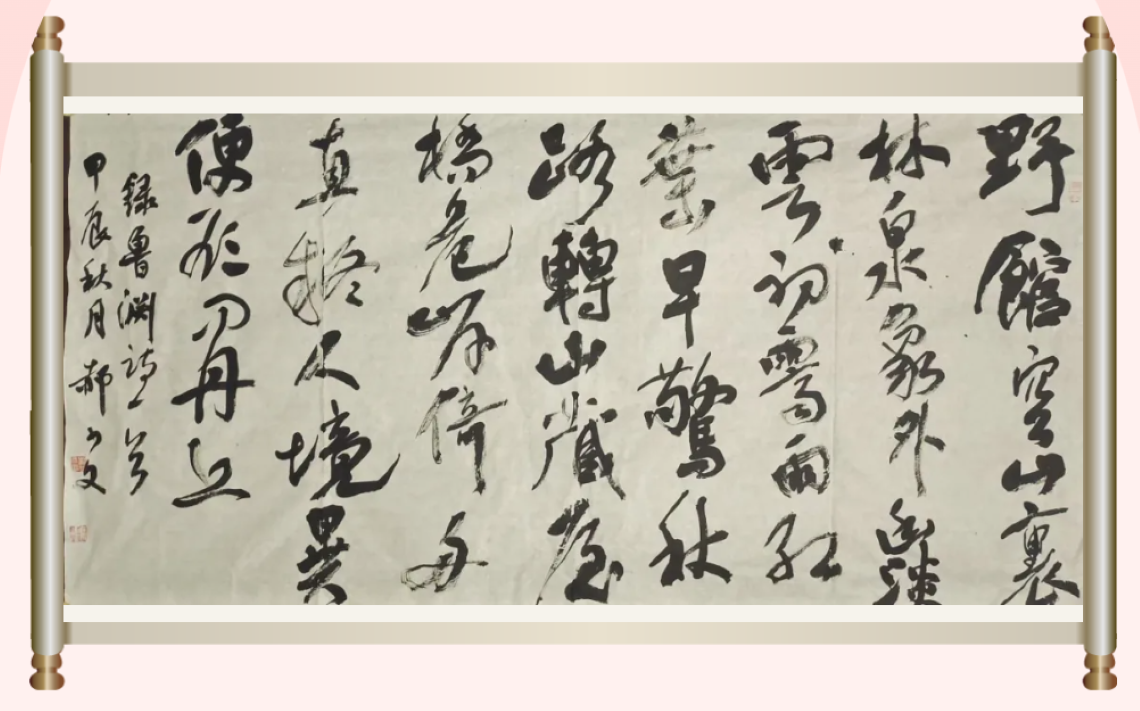 野館空山裏
林泉象外幽淡
雲初霽雨紅
葉早驚秋
路轉山藏屋
橋危岸倚舟
直疑人境異
便欲問丹丘
録魯淵詩一首
甲辰秋月郝文